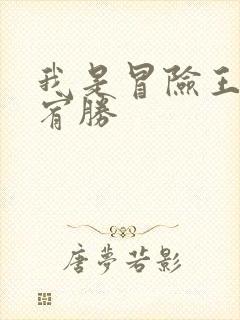 我是冒險王
宥勝
唐夢若影